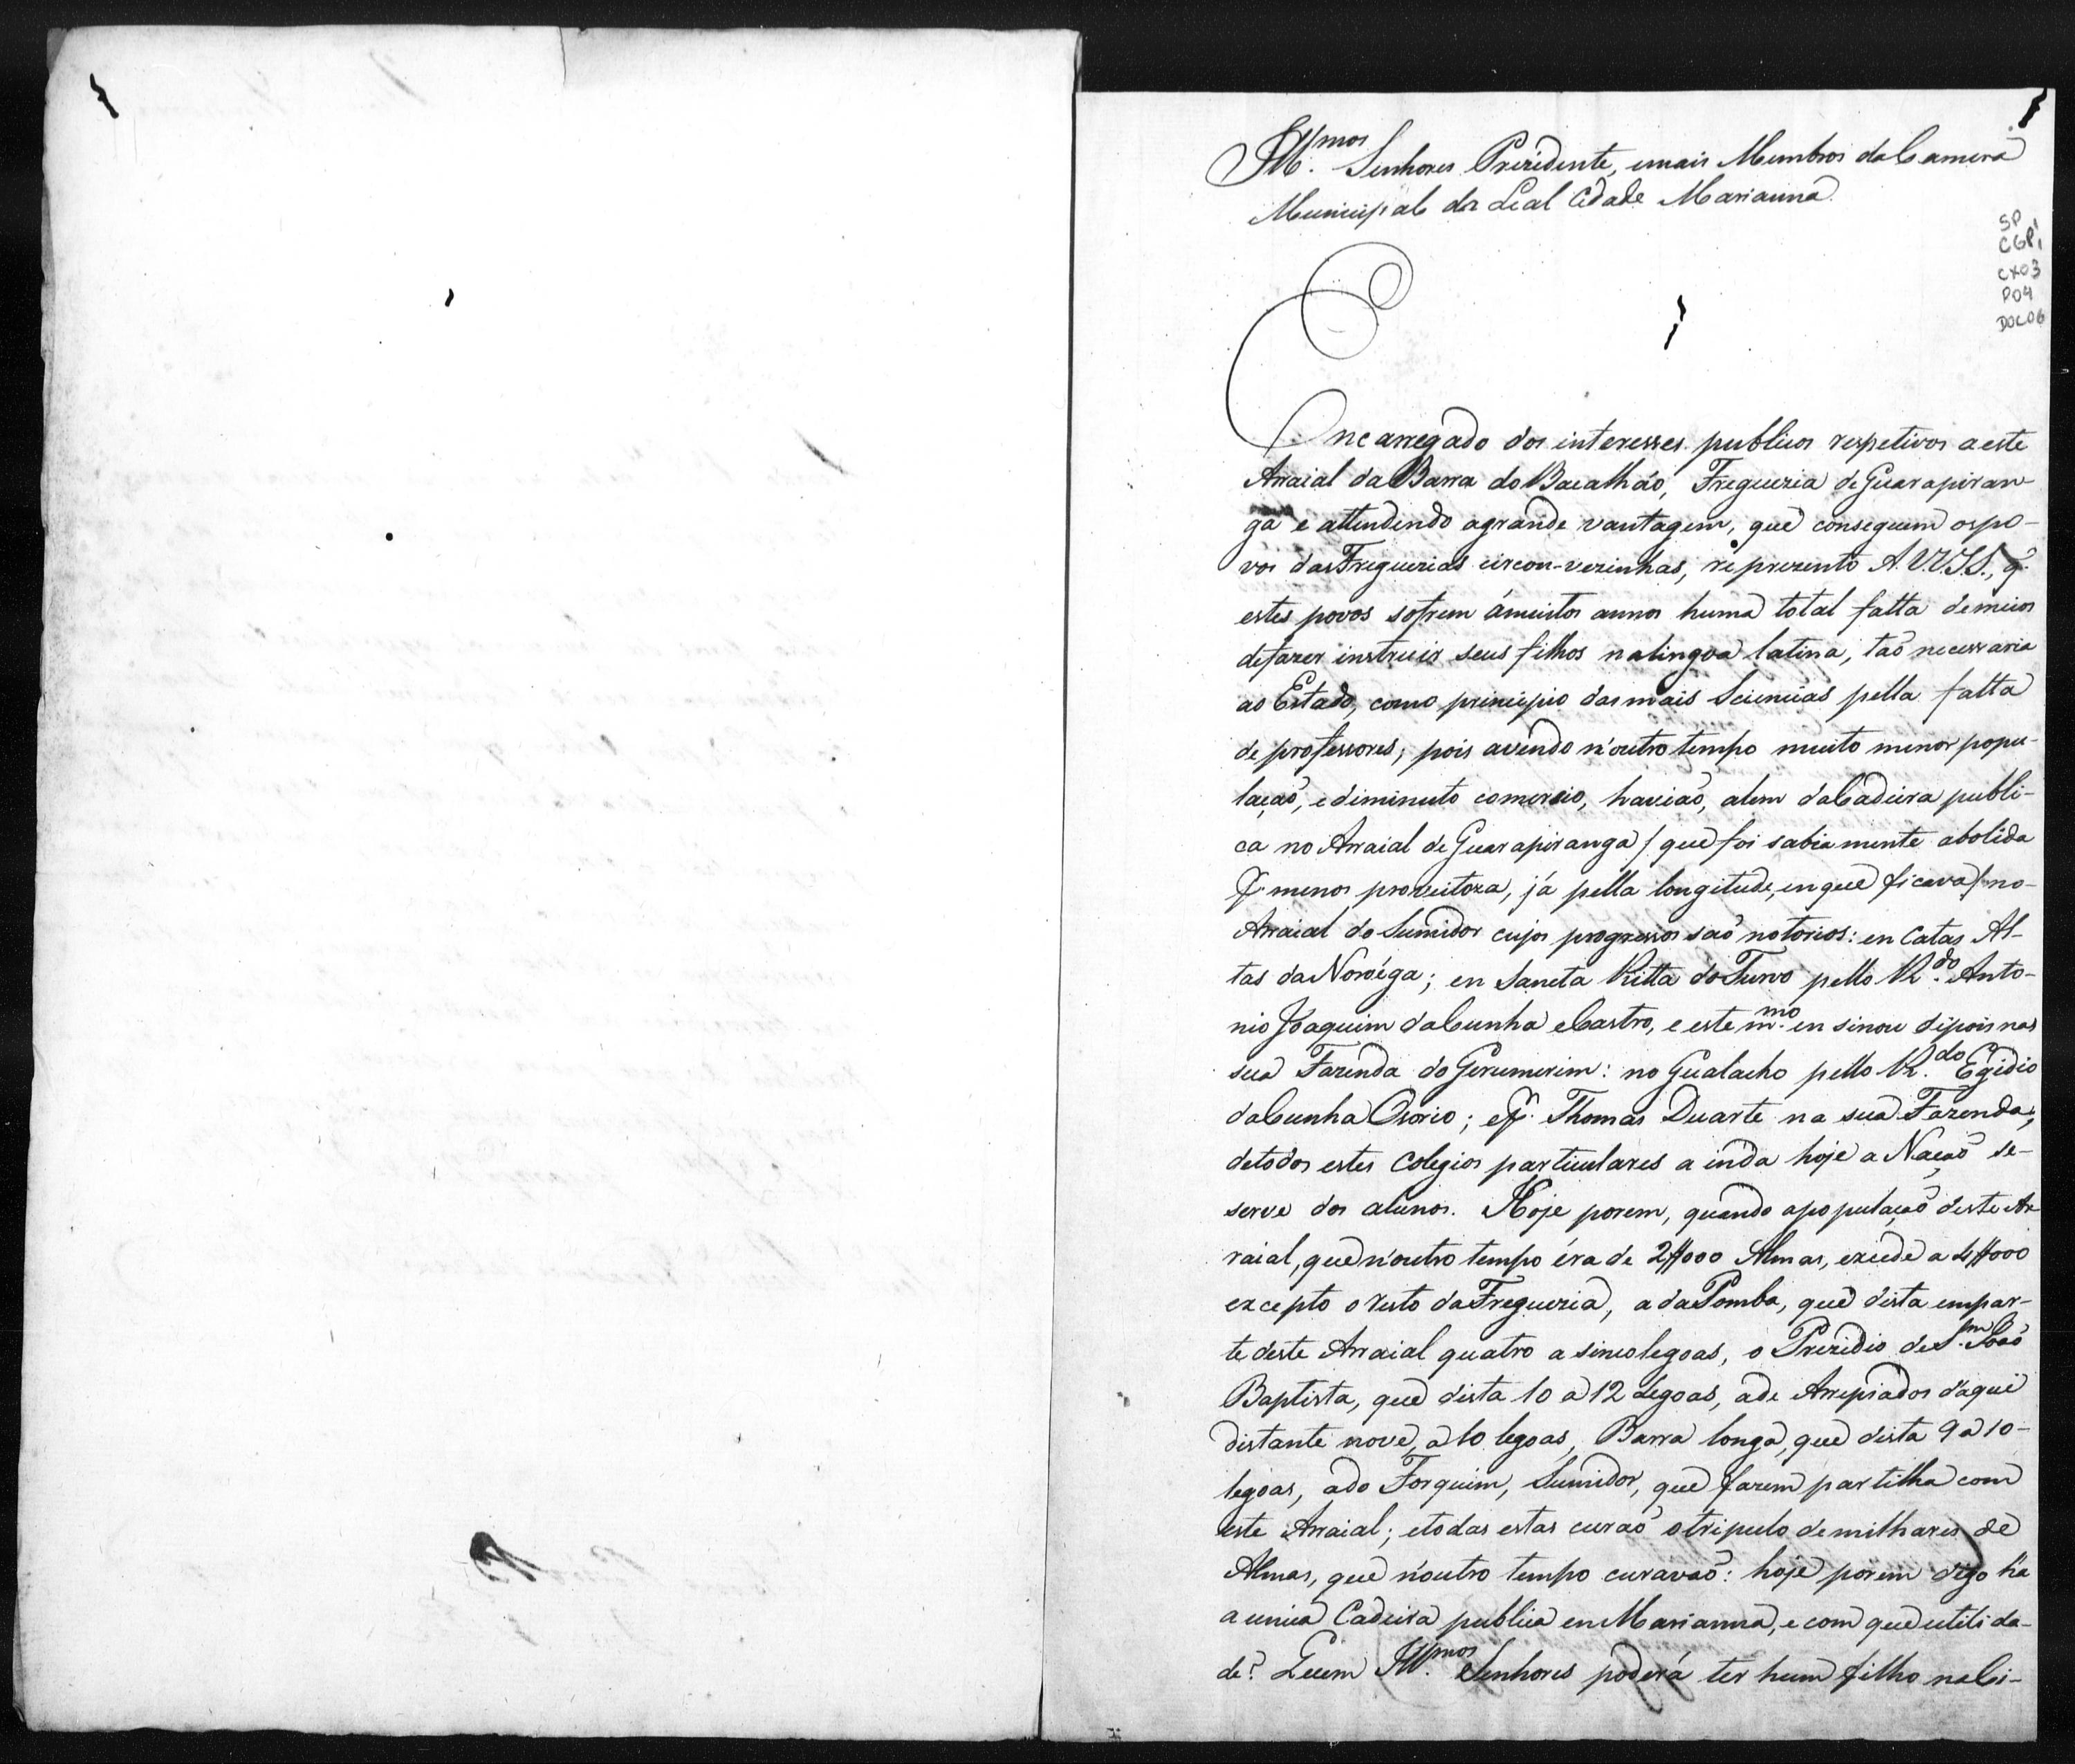 Ill.mos Senhores Prezidente, emais Membros da Camera
Municipal da Leal Cidade Marianna
SP
CGP1
CX03
P04
DOC06
Encarregado dos interesses publicos respetivos aeste
Arraial da Barra do Bacalháo, Freguezia de Guarapiran-
ga e attendendo agrande vantagem, que conseguem ospo-
vos das Freguezias circon-vezinhas, reprezento A. V.V.S.S., q.
estes povos sofrem ámuitos annos huma total falta demeios
defazer instruir seus filhos nalingoa latina, taõ necessaria
ao Estado, como principio das mais Sciencias pella falta
de professores; pois avendo n'outro tempo muito menor popu-
laçaõ, ediminuto comercio, haviaõ, alem daCadeira publi-
ca no Arraial de Guarapiranga / que foi sabiamente abolida
p.r menos proveitoza, já pella longitude, enque ficava / no-
Arraial do Sumidor cujos progressos saõ notorios: en Catas Al-
tas da Noroéga; en Sancta Ritta do Turvo pello R.do Anto-
nio Joaquim daCunha eCastro, e este m.mo ensinou dipois nas
sua Fazenda do Gerumirim: no Gualacho pello R.do Egidio
daCunha Ozorio; ep.r Thomas Duarte na sua Fazenda,
detodos estes Colegios particulares ainda hoje a Naçaõ se-
serve dos alunos. Hoje porem, quando apopulaçaõ deste Ar
raial, que n'outro tempo éra de 2#000 Almas, excede a 4#000
excepto o resto daFreguezia, a daPomba, que dista empar-
te deste Arraial quatro a sincolegoas, o Prezidio de S.m Joaõ
Baptista, que dista 10 a 12 Legoas, ade Arrepiados d'aqui
distante nove, a 10 legoas, Barra longa, que dista 9 a 10-
legoas, ado Forquim, Sumidor, que fazem partilha com
este Arraial; etodas estas curaõ otripulo demilhares de
Almas, que n'outro tempo curavaõ: hoje porem digo há
a unica Cadeira publica en Marianna, e com que utilida-
de? Quem Ill.mos Senhores poderá ter hum filho naCi-